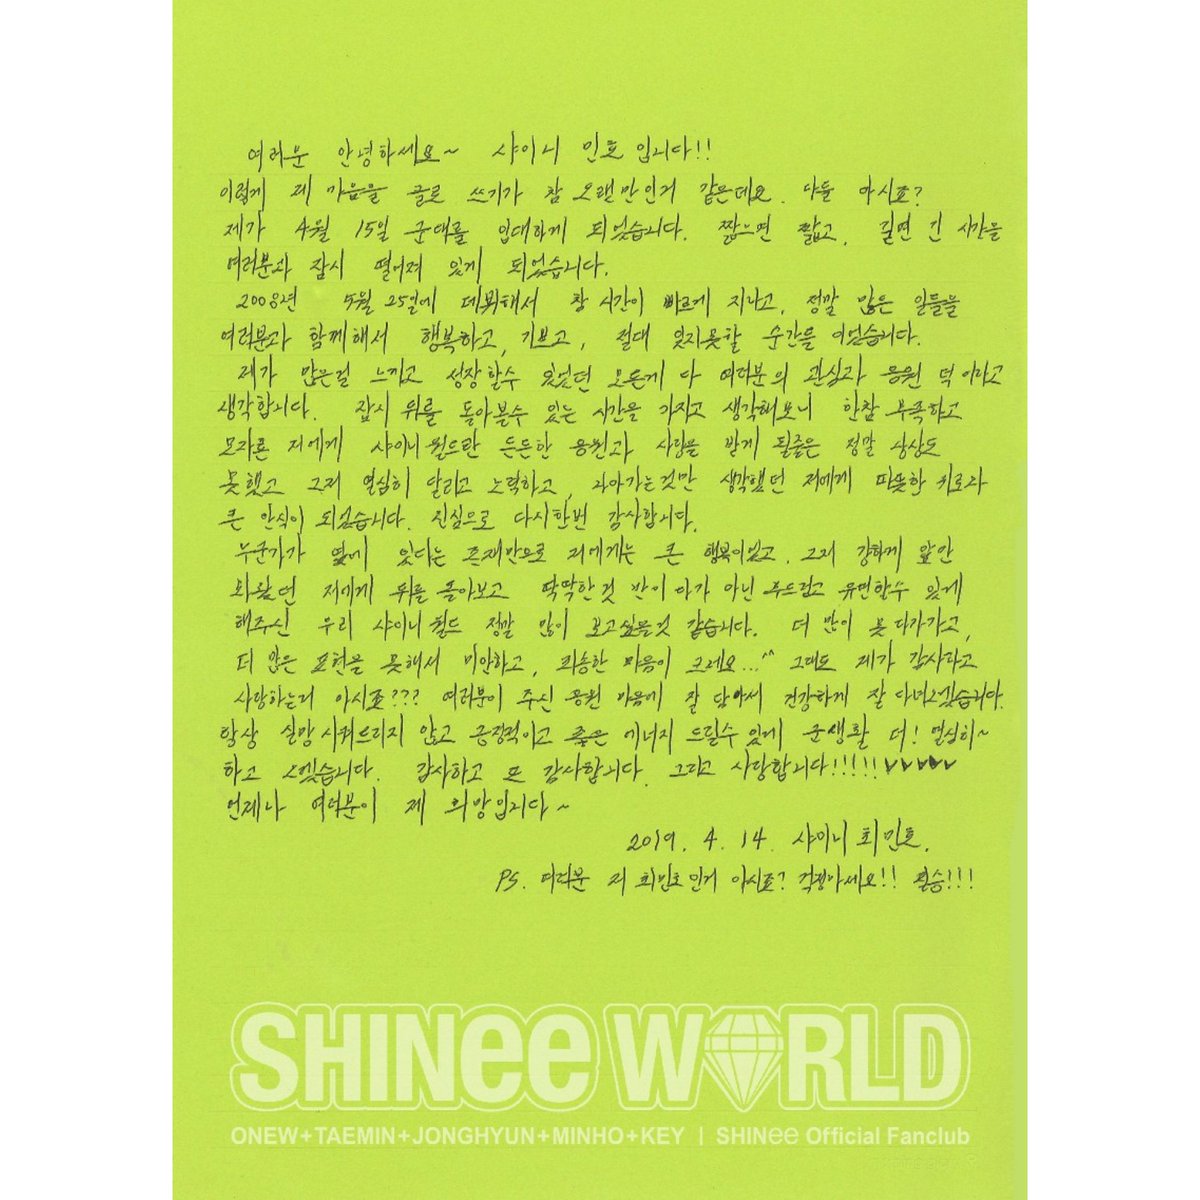 여러분 안녕하세요~ 샤이니 민호입니다!!
이렇게 제 마음을 글로 쓰기가 참 오랜만인거 같은데요. 다들 아시죠?
제가 4월 15일 군대를 입대하게 되었습니다. 짧으면 짧고, 길면 긴 시간을
여러분과 잠시 떨어져 있게 되었습니다.
2008년 5월 25일에 데뷔해서 참 시간이 빠르게 지나고, 정말 많은 일들을
여러분과 함께해서 행복하고, 기쁘고, 절대 잊지못할 순간들이었습니다.
제가 많은걸 느끼고 성장할수 있었던 모든게 다 여러분의 관심과 응원 덕이라고
생각합니다. 잠시 뒤를 돌아볼수 있는 시간을 가지고 생각해보니 한참 부족하고
모자른 저에게 샤이니월드란 든든한 응원과 사랑을 받게 될줄은 정말 상상도
못했고 그저 열심히 달리고 노력하고, 나아가는것만 생각했던 저에게 따뜻한 위로과
큰 안식이 되었습니다. 진심으로 다시한번 감사합니다.
누군가가 옆에 있다는 존재만으로 저에게는 큰 행복이었고, 그저 강하게 앞만
봐왔던 저에게 뒤를 돌아보고 딱딱한것 만이 다가 아닌 부드럽고 유연할수 있게
해주신 우리 샤이니월드 정말 많이 보고싶을것 같습니다. 더 많이 못 다가가고,
더 많은 표현을 못해서 미안하고, 죄송한 마음이 크네요...^^ 그래도 제가 감사하고
사랑하는거 아시죠??? 여러분이 주신 응원 마음에 잘 담아서 건강하게 잘 다녀오겠습니다.
항상 실망시켜드리지 않고 긍정적이고 좋은 에너지 드릴수 있게 군생활 더! 열심히~
하고 오겠습니다. 감사하고 또 감사합니다. 그리고 사랑합니다!!!!!! ♥♥♥♥♥
언제나 여러분이 제 희망입니다~
2019. 4. 14. 샤이니 최민호.
PS. 여러분 저 최민호인거 아시죠? 걱정마세요!! 필승!!!
SHINee WORLD
ONEW+TAEMIN+JONGHYUN+MINHO+KEY | SHINee Official Fanclub